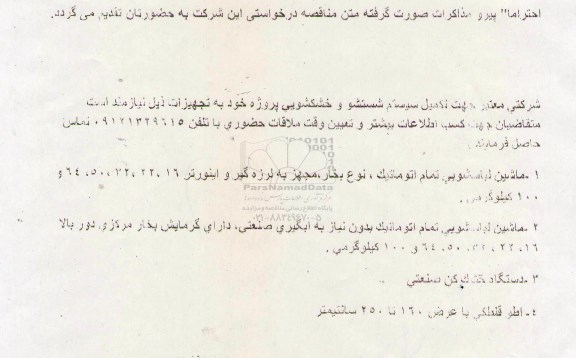 احتراما" پیرو مذاکرات صورت گرفته متن مناقصه درخواستی این شرکت به حضورتان تقدیم می گردد.
شرکتی معتبر جهت تکمیل سیستم شستشو و خشکشویی پروژه خود به تجهیزات ذیل نیازمند است
متقاضیان جهت کسب اطلاعات بیشتر و تعیین وقت ملاقات حضوری با تلفن ۰۹۱۲۱۳۲۹۶۱۵ تماس
حاصل فرمایند.
۱ -ماشین لباسشویی تمام اتوماتیک ، نوع بخار،مجهز به لرزه گیر و اینورتر ۱۶ ،۲۲ ،۳۲ ،۵۰ ،۶۴ و
۱۰۰ کیلوگرمی.
۲ -ماشین لباسشویی تمام اتوماتیک بدون نیاز به آبگیری صنعتی، دارای گرمایش بخار مرکزی دور بالا
۱۶، ۲۲ ، ۳۲، ۵۰، ۶۴ و ۱۰۰ کیلوگرمی .
۳ -دستگاه خشک کن صنعتی
۴- اطو غلطکی با عرض ۱۶۰ تا ۲۵۰ سانتیمتر
ParsNamadData
۰۲۱-۸۸۳۴۹۶۷۰-۵